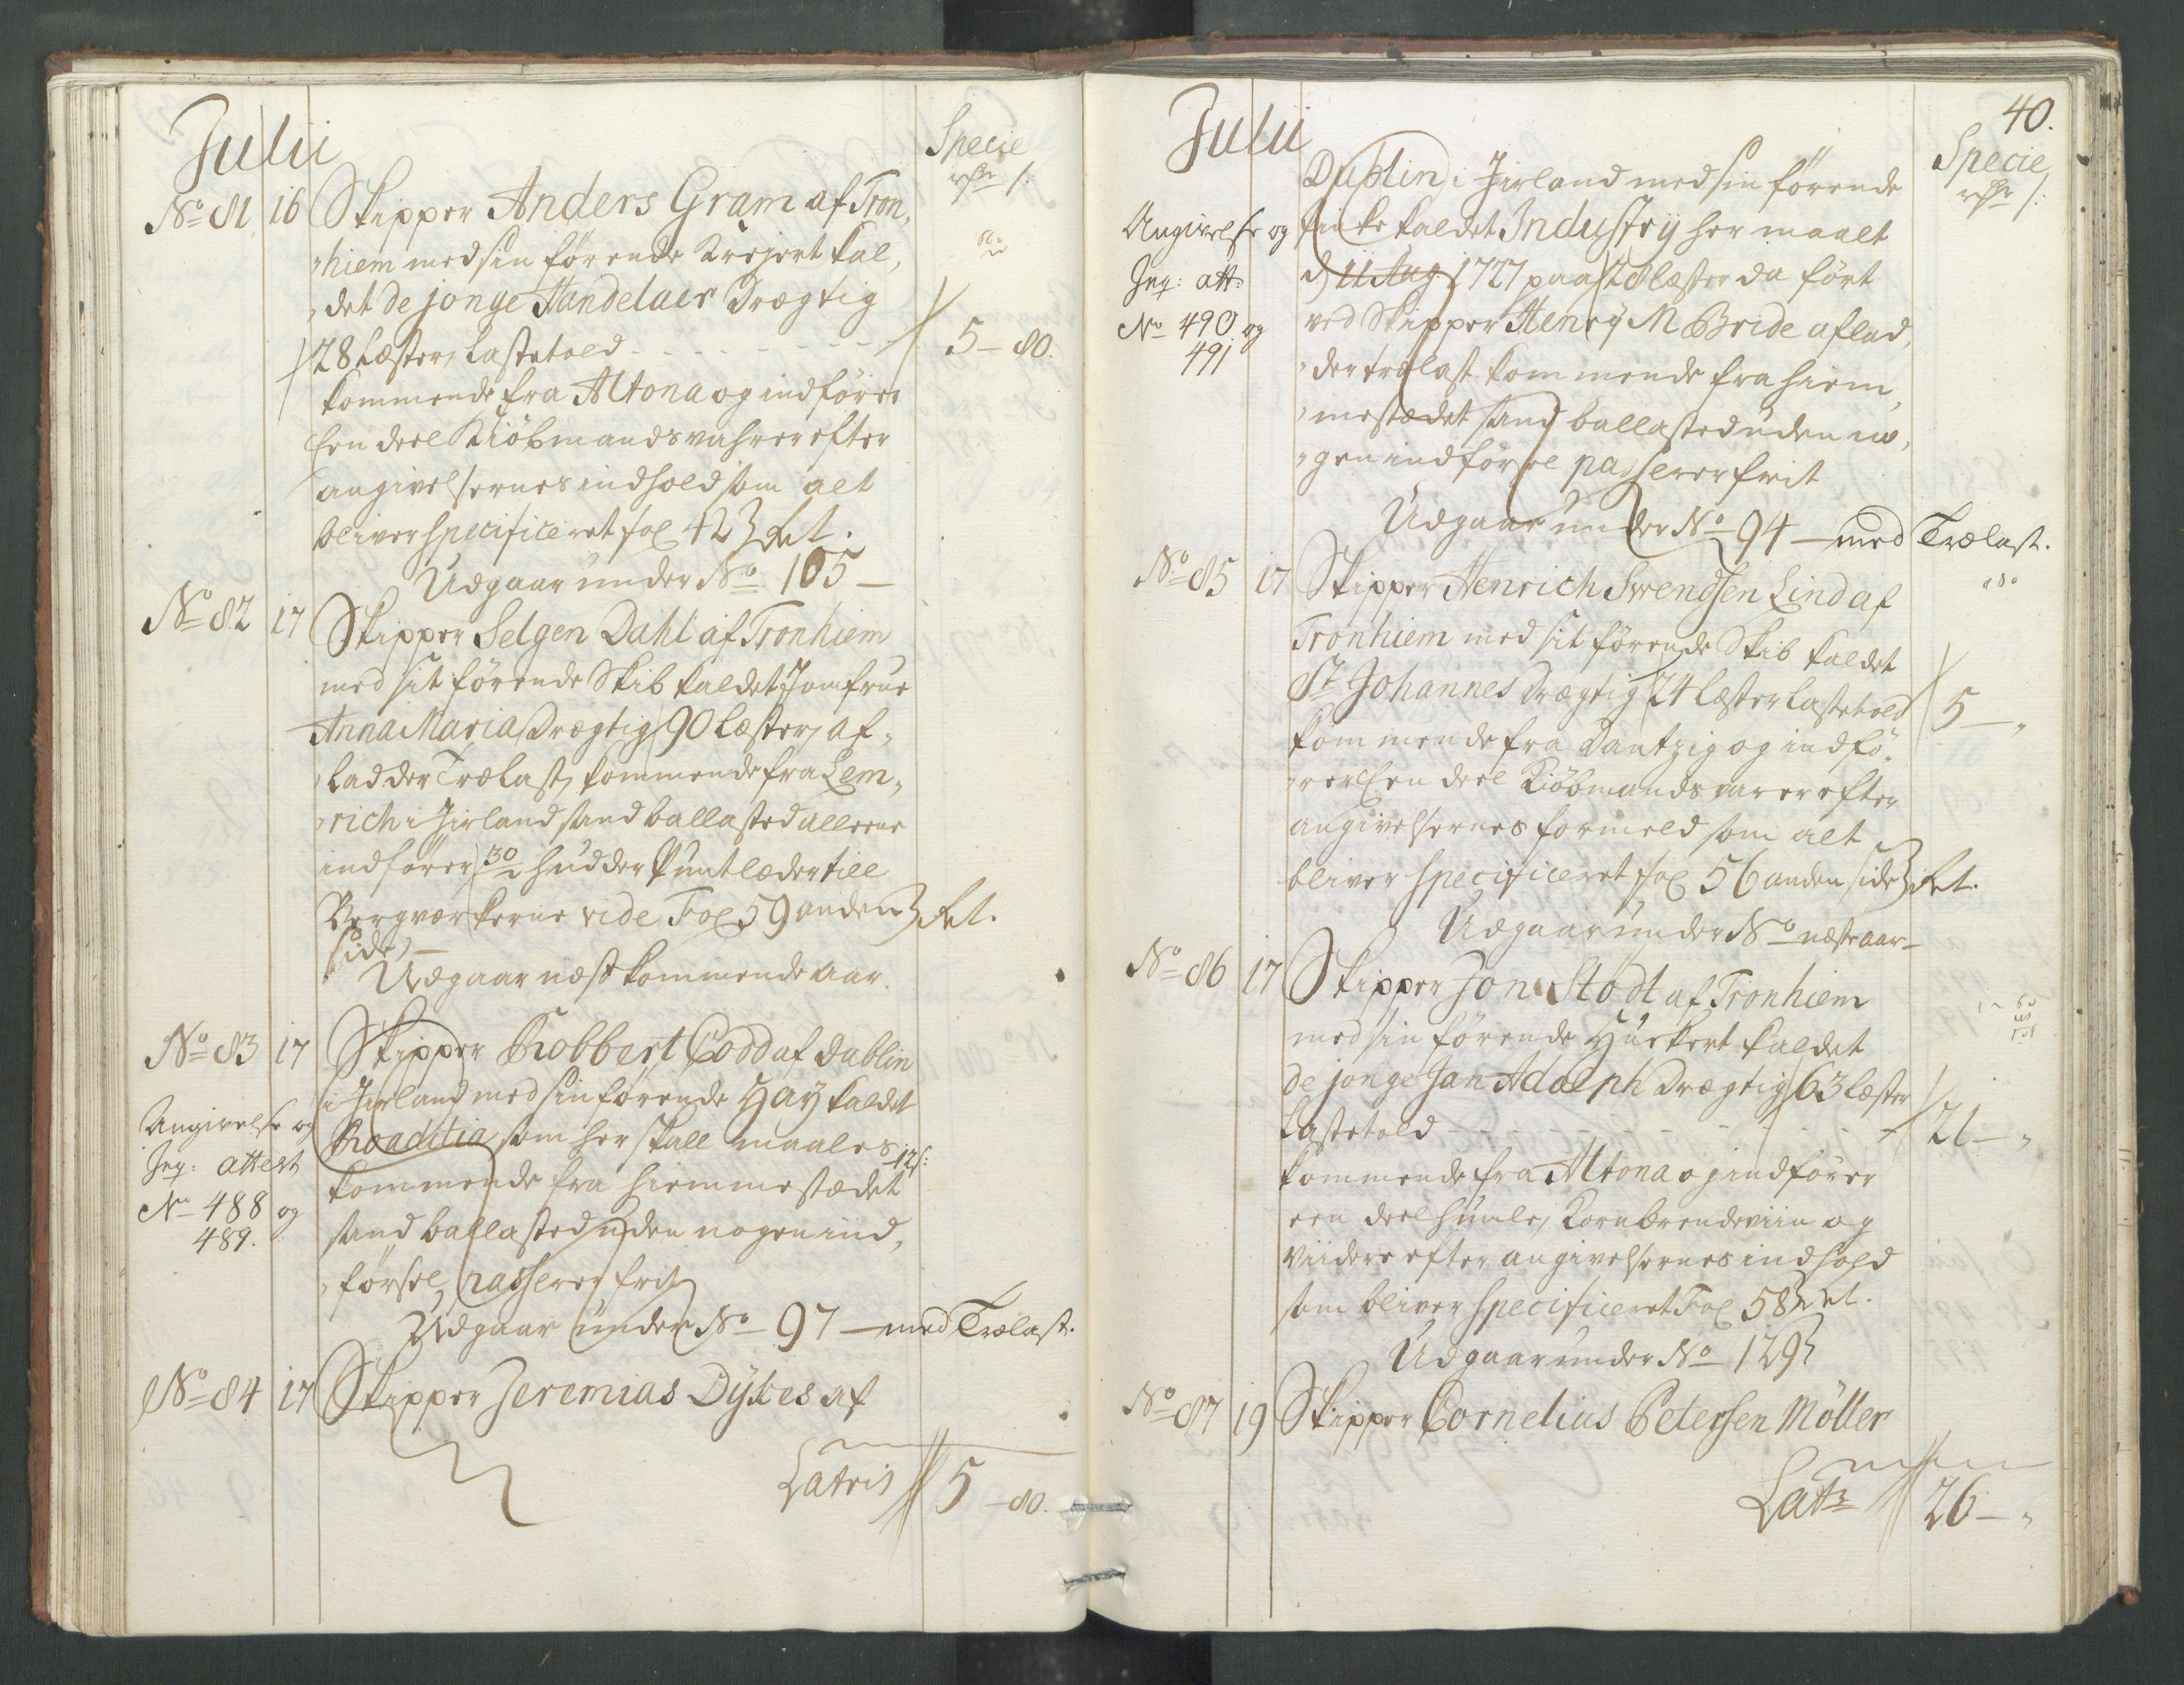 Julii
Specie
rdr s.
No 81. 16 Skipper Anders Gram af Tron,
hiem med sin förende Krejert kal,
det de jonge Handelaer Drægtig
28 Læster, Lastetold - - - - - 5 - 80.
kommende fra Altona og indförer
Een deel Kiöbmandsvahrer efter
angivelsernes indhold som alt
bliver specificeret fol 42
Udgaar under No 105 -
No 82 17 Skipper Selgen Dahl af Tronhiem
med sit förende Skib kaldet Jomfrue
Anna Maria Drægtig 90 Læster, af,
ladder Trælast, kommende fra Lem,
rich i Jirland sand ballasted alleene
indförer 30 hudder Puntlæder till
Bergværkerne vide Fol 59 anden
side, -
Udgaar næstkommende aar.
No 83 17 Skipper Robbert Codd af Dublin
Angivelse og
Inq: attest
No 488 og
489.
i Jirland med sin förende Hay kaldet
Roaditia som her skall maales
12 s:
kommende fra hiemmestædet
sand ballasted uden nogen ind,
försel, passerer frit
Udgaar under No 97 - med Trælast.
No 84 17 Skipper Jeremias Dykes af
Lateris 5 - 80.
40.
Julii
Specie
rdr s:
Dublin i Jirland med sin förende
Angivelse og
Inq: att:
No 490 og
491
kaldet Industry her maalt
d 11 Aug 1727 paa læster da fört
ved Skipper Henry M Bride aflad,
der trælast kommende fra hiem,
mestædet sand ballasted uden no,
gen indförsel passerer frit
Udgaar under No 94 - med Trælast.
No 85 17 Skipper Henrich Swendsen Lind af
Tronhiem med sit förende Skib kaldet
St Johannes Drægtig 24 læster Lastetold 5 - "
kommende fra Dantzig og indfö,
rer Een deel Kiöbmandsvarer efter
angivelsernes formeld som alt
bliver specificeret fol 56 anden side
Udgaar under No næste aar -
No 86 17 Skipper Jon Stodt af Tronhiem
med sin förende Huckert kaldet
de jonge Jan Adolph Drægtig 63 læster
Lastetold - - - - - 21 - "
kommende fra Altona og indförer
een deel humle, Kornbrendeviin og
viidere efter angivelsernes indhold
som bliver specificeret Fol 58
Udgaar under No 129
No 87 19 Skipper Cornelius Petersen Möller
Lats 26 - "